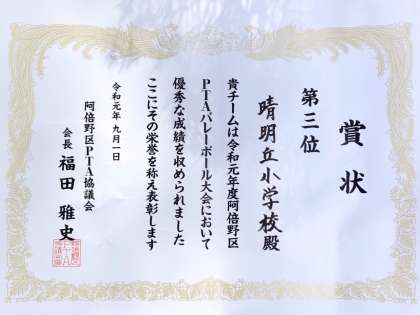 賞状
第三位
晴明丘小学校殿
貴チームは令和元年度阿倍野区
PTAバレーボール大会において
優秀な成績を収められました
ここにその栄誉を称え表彰します
令和元年九月一日
阿倍野区PTA協議会
会長 福田雅史